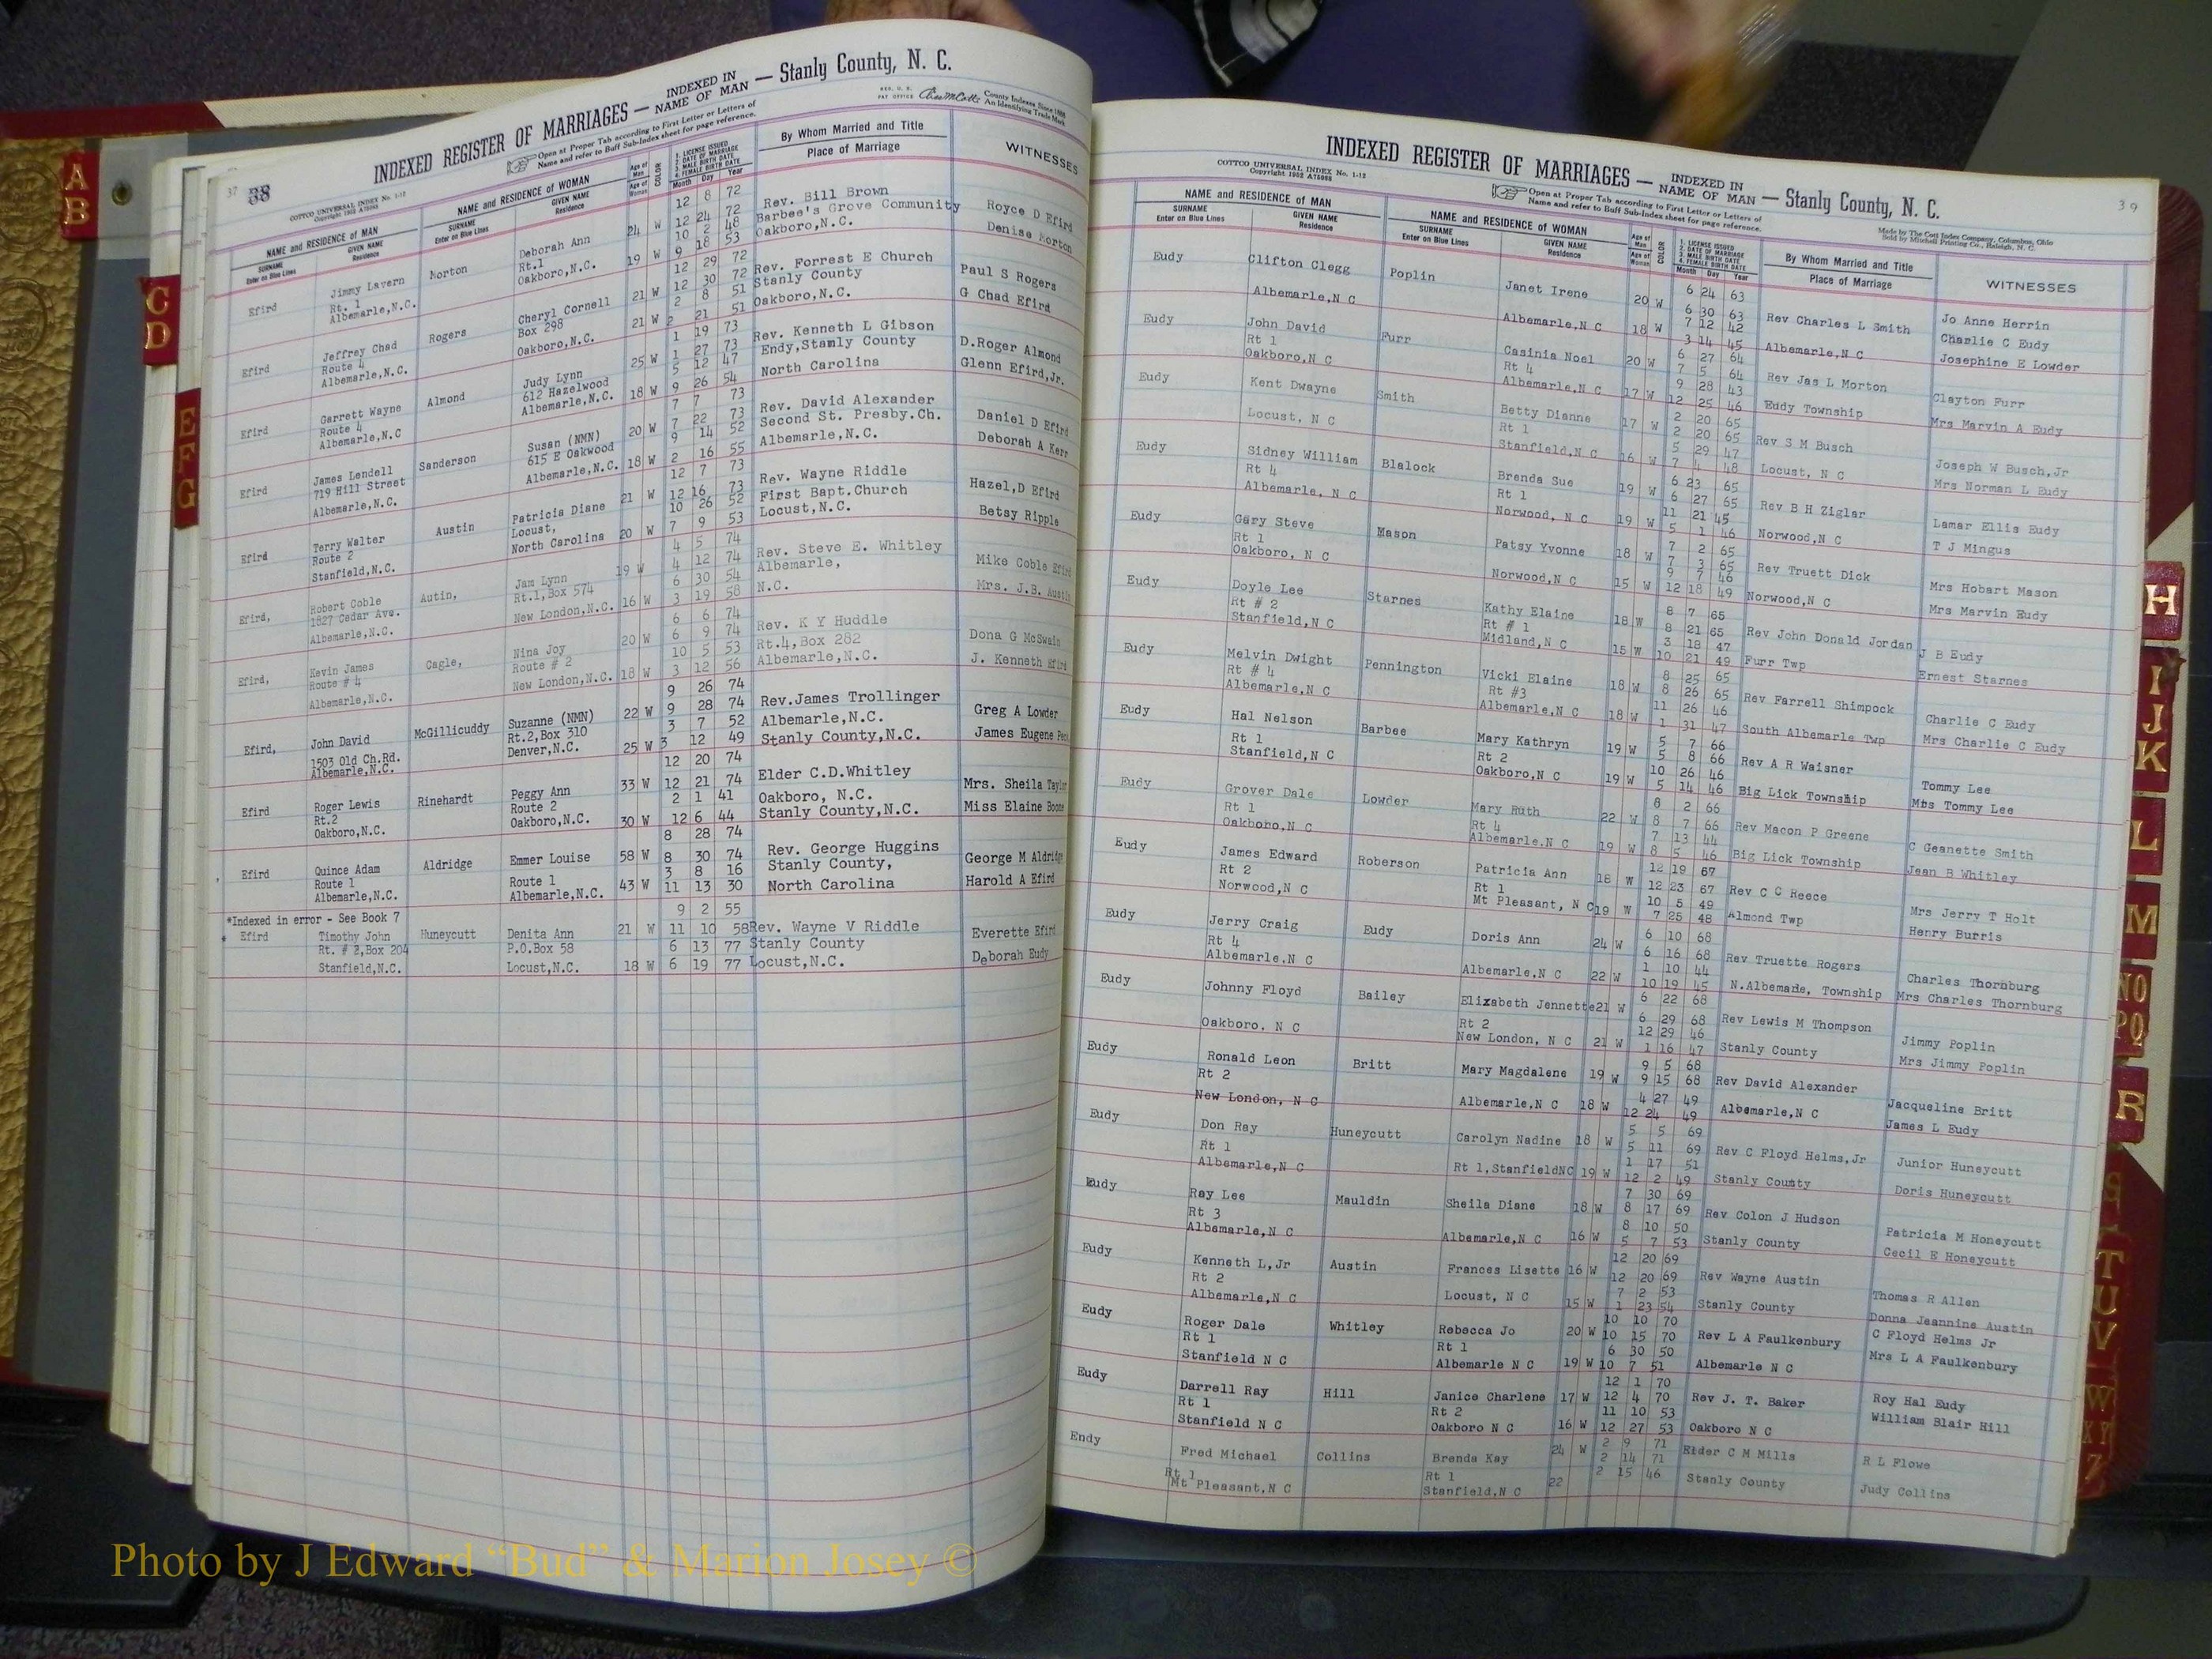 A
B
C
D
E
F
G
37 38
INDEXED REGISTER OF MARRIAGES — INDEXED IN NAME OF MAN — Stanly County, N. C.
COTTCO UNIVERSAL INDEX No. 1-12
Open at Proper Tab according to First Letter or Letters of
Name and refer to Buff Sub-Index sheet for page reference.
County Indexes Since 1888
An Identifying Trade Mark
NAME and RESIDENCE OF MAN
SURNAME Enter on Blue Lines
GIVEN NAME Residence
NAME and RESIDENCE OF WOMAN
SURNAME Enter on Blue Lines
GIVEN NAME Residence
Age of Man
Age of Woman
COLOR
1. LICENSE ISSUED
2. DATE OF MARRIAGE
3. MALE BIRTH DATE
4. FEMALE BIRTH DATE
Month Day Year
By Whom Married and Title
Place of Marriage
WITNESSES
12 8 72
Efird Jimmy Lavern Morton Deborah Ann 24 W 12 24 72 Rev. Bill Brown Royce D Efird
Rt. 1 Rt.1 10 2 48 Barbee's Grove Community
Albemarle,N.C. Oakboro,N.C. 19 W 9 18 53 Oakboro,N.C. Denise Morton
12 29 72
Efird Jeffrey Chad Rogers Cheryl Cornell 21 W 12 30 72 Rev. Forrest E Church Paul S Rogers
Route 4 Box 298 2 8 51 Stanly County
Albemarle,N.C. Oakboro,N.C. 21 W 2 21 51 Oakboro,N.C. G Chad Efird
1 19 73
Efird Garrett Wayne Almond Judy Lynn 25 W 1 27 73 Rev. Kenneth L Gibson D.Roger Almond
Route 4 612 Hazelwood 5 12 47 Endy,Stanly County
Albemarle,N.C Albemarle,N.C. 18 W 9 26 54 North Carolina Glenn Efird,Jr.
7 7 73
Efird James Lendell Sanderson Susan (NMN) 20 W 7 22 73 Rev. David Alexander Daniel D Efird
719 Hill Street 615 E Oakwood 9 14 52 Second St. Presby.Ch.
Albemarle,N.C. Albemarle,N.C. 18 W 2 16 55 Albemarle,N.C. Deborah A Kerr
12 7 73
Efird Terry Walter Austin Patricia Diane 21 W 12 16 73 Rev. Wayne Riddle Hazel,D Efird
Route 2 Locust, 10 26 52 First Bapt.Church
Stanfield,N.C. North Carolina 20 W 7 9 53 Locust,N.C. Betsy Ripple
4 5 74
Efird, Robert Coble Autin, Jam Lynn 19 W 4 12 74 Rev. Steve E. Whitley Mike Coble Efird
1827 Cedar Ave. Rt.1,Box 574 6 30 54 Albemarle,
Albemarle,N.C. New London,N.C. 16 W 3 19 58 N.C. Mrs. J.B. Austin
6 6 74
Efird, Kevin James Cagle, Nina Joy 20 W 6 9 74 Rev. K Y Huddle Dona G McSwain
Route # 4 Route # 2 10 5 53 Rt.4,Box 282
Albemarle,N.C. New London,N.C. 18 W 3 12 56 Albemarle,N.C. J. Kenneth Efird
9 26 74
Efird, John David McGillicuddy Suzanne (NMN) 22 W 9 28 74 Rev.James Trollinger Greg A Lowder
1503 Old Ch.Rd. Rt.2,Box 310 3 7 52 Albemarle,N.C.
Albemarle,N.C. Denver,N.C. 25 W 3 12 49 Stanly County,N.C. James Eugene
12 20 74
Efird Roger Lewis Rinehardt Peggy Ann 33 W 12 21 74 Elder C.D.Whitley Mrs. Sheila Taylor
Rt.2 Route 2 2 1 41 Oakboro, N.C.
Oakboro,N.C. Oakboro,N.C. 30 W 12 6 44 Stanly County,N.C. Miss Elaine Boone
8 28 74
Efird Quince Adam Aldridge Emmer Louise 58 W 8 30 74 Rev. George Huggins George M Aldridge
Route 1 Route 1 3 8 16 Stanly County,
Albemarle,N.C. Albemarle,N.C. 43 W 11 13 30 North Carolina Harold A Efird
*Indexed in error - See Book 7 9 2 55
* Efird Timothy John Huneycutt Denita Ann 21 W 11 10 58 Rev. Wayne V Riddle Everette Efird
Rt. # 2,Box 204 P.O.Box 58 6 13 77 Stanly County
Stanfield,N.C. Locust,N.C. 18 W 6 19 77 Locust,N.C. Deborah Eudy
39
INDEXED REGISTER OF MARRIAGES — INDEXED IN NAME OF MAN — Stanly County, N. C.
COTTCO UNIVERSAL INDEX No. 1-12
Open at Proper Tab according to First Letter or Letters of
Name and refer to Buff Sub-Index sheet for page reference.
Made by The Cott Index Company, Columbus, Ohio
Sold by Mitchell Printing Co., Raleigh, N. C.
NAME and RESIDENCE OF MAN
SURNAME Enter on Blue Lines
GIVEN NAME Residence
NAME and RESIDENCE OF WOMAN
SURNAME Enter on Blue Lines
GIVEN NAME Residence
Age of Man
Age of Woman
COLOR
1. LICENSE ISSUED
2. DATE OF MARRIAGE
3. MALE BIRTH DATE
4. FEMALE BIRTH DATE
Month Day Year
By Whom Married and Title
Place of Marriage
WITNESSES
6 24 63
Eudy Clifton Clegg Poplin Janet Irene 20 W 6 30 63 Rev Charles L Smith Jo Anne Herrin
7 12 42 Charlie C Eudy
Albemarle,N C Albemarle,N C 18 W 3 14 45 Albemarle,N C Josephine E Lowder
6 27 64
Eudy John David Furr Casinia Noel 20 W 7 5 64 Rev Jas L Morton Clayton Furr
Rt 1 Rt 4 9 28 43
Oakboro,N C Albemarle,N C 17 W 12 25 46 Eddy Township Mrs Marvin A Eudy
2 20 65
Eudy Kent Dwayne Smith Betty Dianne 17 W 2 20 65 Rev S M Busch Joseph W Busch,Jr
Rt 1 5 29 47
Locust, N C Stanfield,N C 16 W 7 4 48 Locust, N C Mrs Norman L Eudy
6 23 65
Eudy Sidney William Blalock Brenda Sue 19 W 6 27 65 Rev B H Ziglar Lamar Ellis Eudy
Rt 4 Rt 1 11 21 45
Albemarle, N C Norwood, N C 19 W 5 1 46 Norwood,N C T J Mingus
7 2 65
Eudy Gary Steve Mason Patsy Yvonne 18 W 7 3 65 Rev Truett Dick Mrs Hobart Mason
Rt 1 9 7 46
Oakboro, N C Norwood,N C 15 W 12 18 49 Norwood,N C Mrs Marvin Eudy
8 7 65
Eudy Doyle Lee Starnes Kathy Elaine 18 W 8 21 65 Rev John Donald Jordan J B Eudy
Rt # 2 Rt # 1 3 18 47
Stanfield,N C Midland,N C 15 W 10 21 49 Furr Twp Ernest Starnes
8 25 65
Eudy Melvin Dwight Pennington Vicki Elaine 18 W 8 26 65 Rev Farrell Shimpock Charlie C Eudy
Rt # 4 Rt #3 11 26 46
Albemarle,N C Albemarle,N C 18 W 1 31 47 South Albemarle Twp Mrs Charlie C Eudy
5 7 66
Eudy Hal Nelson Barbee Mary Kathryn 19 W 5 8 66 Rev A R Waisner Tommy Lee
Rt 1 Rt 2 10 26 46
Stanfield,N C Oakboro,N C 19 W 5 14 46 Big Lick Township Mrs Tommy Lee
8 2 66
Eudy Grover Dale Lowder Mary Ruth 22 W 8 7 66 Rev Macon P Greene C Geanette Smith
Rt 1 Rt 4 7 13 44
Oakboro,N C Albemarle,N C 19 W 8 5 46 Big Lick Township Jean B Whitley
12 19 67
Eudy James Edward Roberson Patricia Ann 18 W 12 23 67 Rev C C Reece Mrs Jerry T Holt
Rt 2 Rt 1 10 5 49
Norwood,N C Mt Pleasant, N C 19 W 7 25 48 Almond Twp Henry Burris
6 10 68
Eudy Jerry Craig Eudy Doris Ann 24 W 6 16 68 Rev Truette Rogers Charles Thornburg
Rt 4 1 10 44
Albemarle,N C Albemarle,N C 22 W 10 19 45 N.Albemarle, Township Mrs Charles Thornburg
6 22 68
Eudy Johnny Floyd Bailey Elizabeth Jennette 21 W 6 29 68 Rev Lewis M Thompson Jimmy Poplin
Rt 2 12 29 46
Oakboro, N C New London, N C 21 W 1 16 47 Stanly County Mrs Jimmy Poplin
9 5 68
Eudy Ronald Leon Britt Mary Magdalene 19 W 9 15 68 Rev David Alexander Jacqueline Britt
Rt 2 4 27 49
New London, N C Albemarle,N C 18 W 12 24 49 Albemarle,N C James L Eudy
5 5 69
Eudy Don Ray Huneycutt Carolyn Nadine 18 W 5 11 69 Rev C Floyd Helms,Jr Junior Huneycutt
Rt 1 1 17 51
Albemarle,N C Rt 1,StanfieldNC 19 W 12 2 49 Stanly County Doris Huneycutt
7 30 69
Eudy Ray Lee Mauldin Sheila Diane 18 W 8 17 69 Rev Colon J Hudson Patricia M Honeycutt
Rt 3 8 10 50
Albemarle,N C Albemarle,N C 16 W 5 7 53 Stanly County Cecil E Honeycutt
12 20 69
Eudy Kenneth L,Jr Austin Frances Lisette 16 W 12 20 69 Rev Wayne Austin Thomas R Allen
Rt 2 7 2 53
Albemarle,N C Locust, N C 15 W 1 23 54 Stanly County Donna Jeannine Austin
10 10 70
Eudy Roger Dale Whitley Rebecca Jo 20 W 10 15 70 Rev L A Faulkenbury C Floyd Helms Jr
Rt 1 Rt 1 6 30 50
Stanfield N C Albemarle N C 19 W 10 7 51 Albemarle N C Mrs L A Faulkenbury
12 1 70
Eudy Darrell Ray Hill Janice Charlene 17 W 12 4 70 Rev J. T. Baker Roy Hal Eudy
Rt 1 Rt 2 11 10 53
Stanfield N C Oakboro N C 16 W 12 27 53 Oakboro N C William Blair Hill
2 9 71
Endy Fred Michael Collins Brenda Kay 24 W 2 14 71 Elder C M Mills R L Flowe
Rt 1 Rt 1 2 15 46
Mt Pleasant,N C Stanfield,N C 22 Stanly County Judy Collins
H
I
J
K
L
M
NO
PQ
R
S
T
U
V
W
XY
Z
Photo by J Edward “Bud” & Marion Josey ©